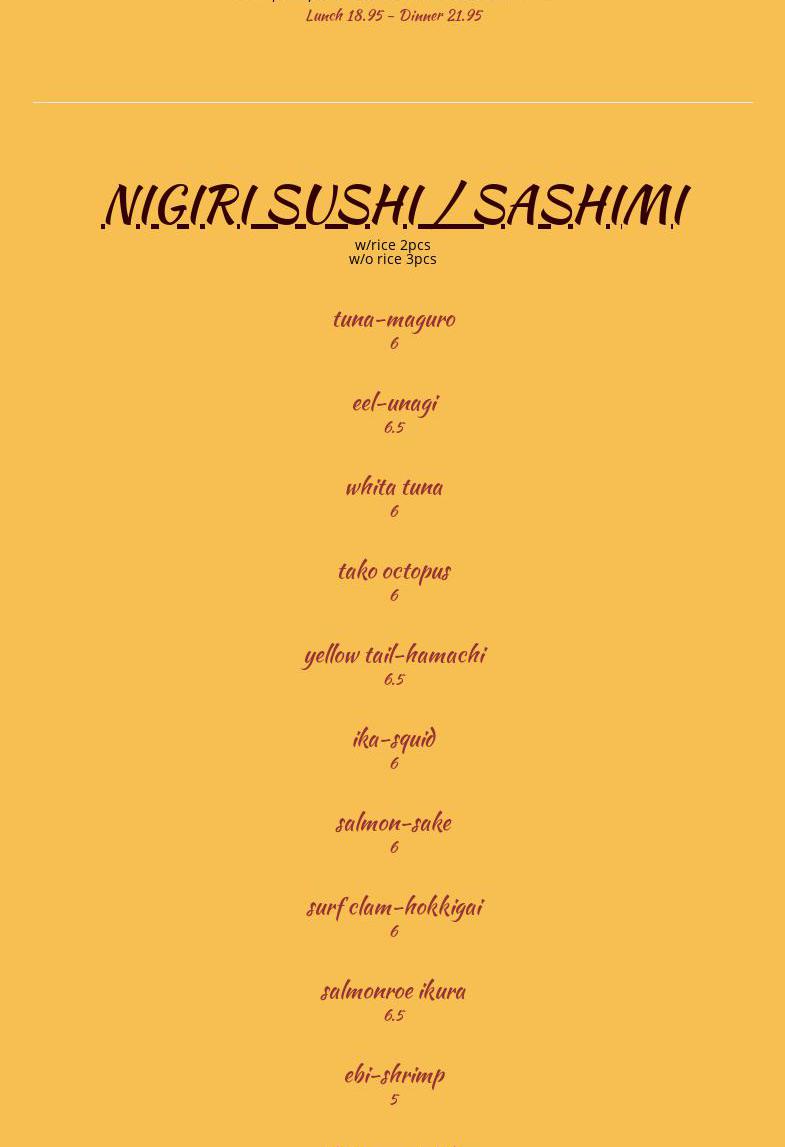 Lunch 18.95 - Dinner 21.95
NIGIRI SUSHI / SASHIMI
w/rice 2pcs
w/o rice 3pcs
tuna-maguro
6
eel-unagi
6.5
whita tuna
6
tako octopus
6
yellow tail-hamachi
6.5
ika-squid
6
salmon-sake
6
surf clam-hokkigai
6
salmonroe ikura
6.5
ebi-shrimp
5